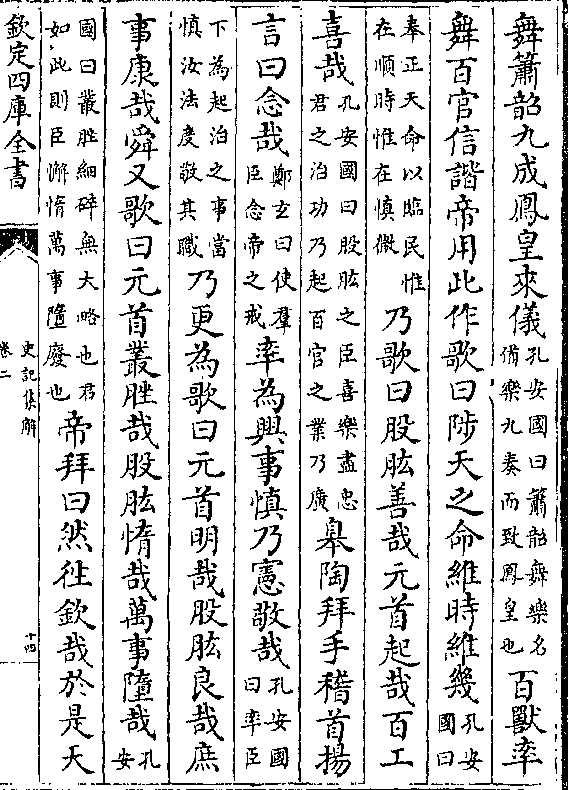 舞簫韶九成鳳皇來儀孔安國曰簫韶舞樂名備樂九奏而致鳳皇也百獸率
舞百官信諧帝用此作歌曰陟天之命維時維幾孔安國曰
奉正天命以臨民惟在順時惟在慎微乃歌曰股肱善哉元首起哉百工
喜哉孔安國曰股肱之臣喜樂盡忠君之治功乃起百官之業乃廣臯陶拜手稽首揚
言曰念哉鄭玄曰使羣臣念帝之戒率為興事慎乃憲敬哉孔安國曰率臣
下為起治之事當慎汝法度敬其職乃更為歌曰元首明哉股肱良哉庶
事康哉舜又歌曰元首叢脞哉股肱惰哉萬事墮哉孔安
國曰叢脞細碎無大略也君如此則臣懈惰萬事隳廢也帝拜曰然往欽哉於是天
欽定四庫全書
史記集解
卷二
十四